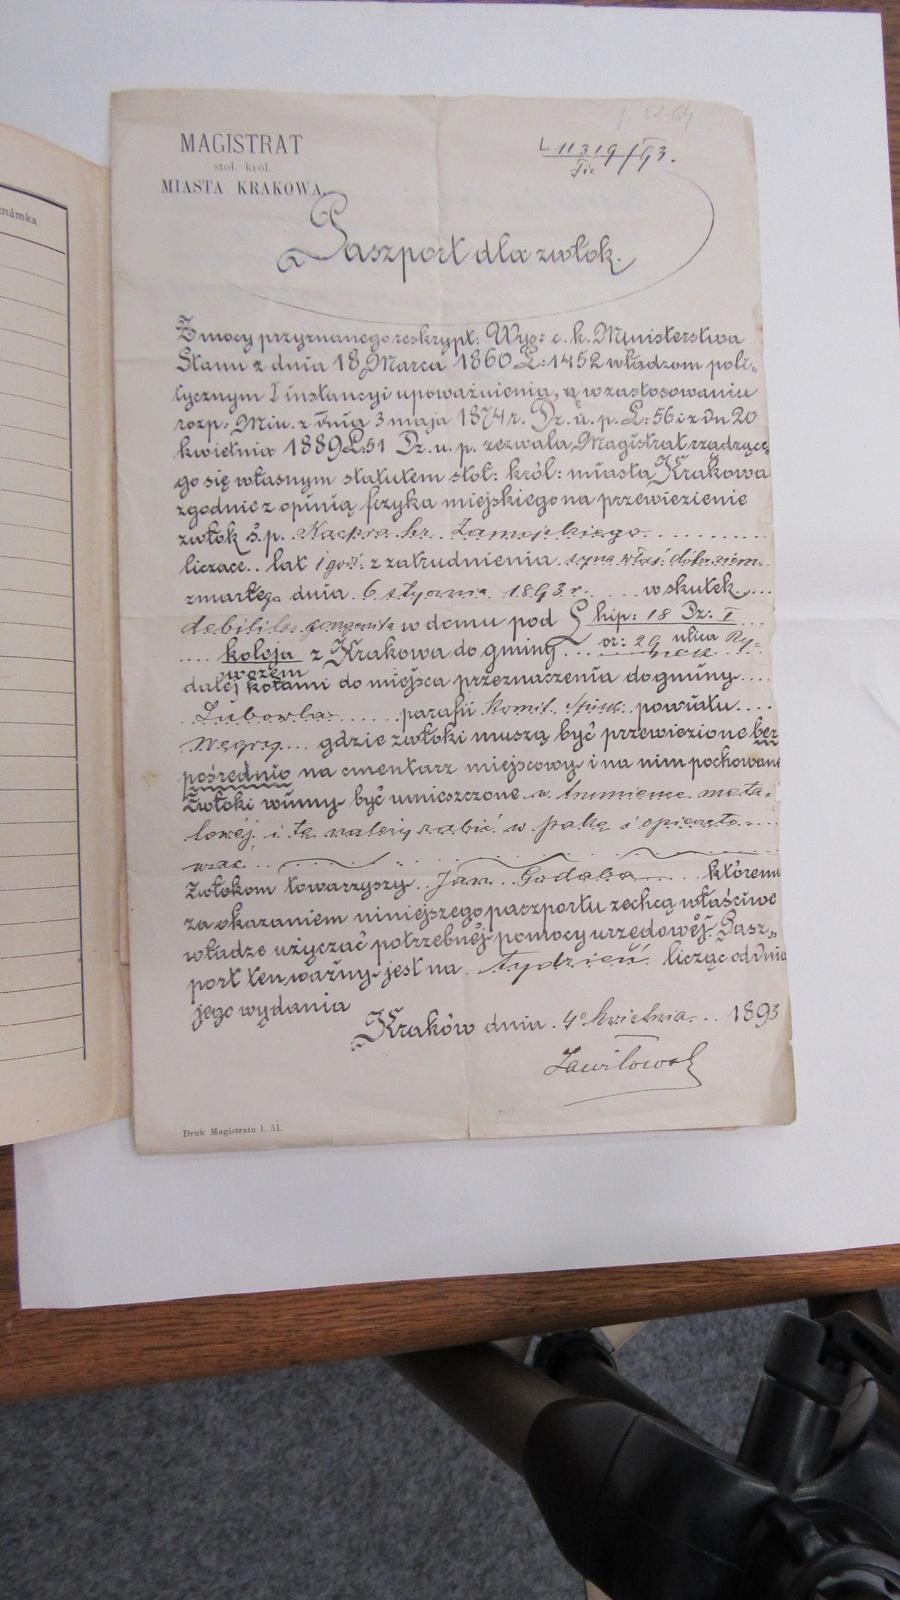 známka
f. 52-64
MAGISTRAT
stoł. król.
MIASTA KRAKOWA.
L. 11319/93.
Paszport dla zwłok.
Z mocy przyznanego reskrypt: Wys: c. k. Ministerstwa
Stanu z dnia 18 Marca 1860 L: 1452 władzom poli-
tycznym I instancyi upoważnienia, a w zastosowaniu
rozp: Min. z dnia 3 maja 1874 r. Dz. u. p. L: 56 i z dn 20
kwietnia 1889 L. 51 Dz. u. p. zezwala Magistrat rządzące-
go się własnym statutem stoł: król: miasta Krakowa
zgodnie z opinią fizyka miejskiego na przewiezienie
zwłok ś. p. Kacpra hr. Zamojskiego
liczące .. lat 1 godź. z zatrudnienia syna właś. dóbr ziem.
zmarłego dnia 6 stycznia 1893 r. w skutek
debilitas congenita w domu pod L hip: 18 Dz: I
or: 29 ulica Ry-
nek
koleją z Krakowa do gminy
wozem
dalej kołami do miejsca przeznaczenia do gminy
Lubowla parafii Komit. Spisk. powiatu
Węgry gdzie zwłoki muszą być przewiezione bez
pośrednio na cmentarz miejscowy i na nim pochowane
Zwłoki winny być umieszczone w trumience meta-
lowej i tę należy zabić w pakę i opieczęto-
wać
Zwłokom towarzyszy Jan Godala któremu
za okazaniem niniejszego paszportu zechcą właściwe
władze użyczać potrzebnej pomocy urzędowej. Pasz-
port ten ważny jest na tydzień licząc od dnia
jego wydania
Kraków dnia 4º kwietnia 1893
Druk Magistratu l. 51.